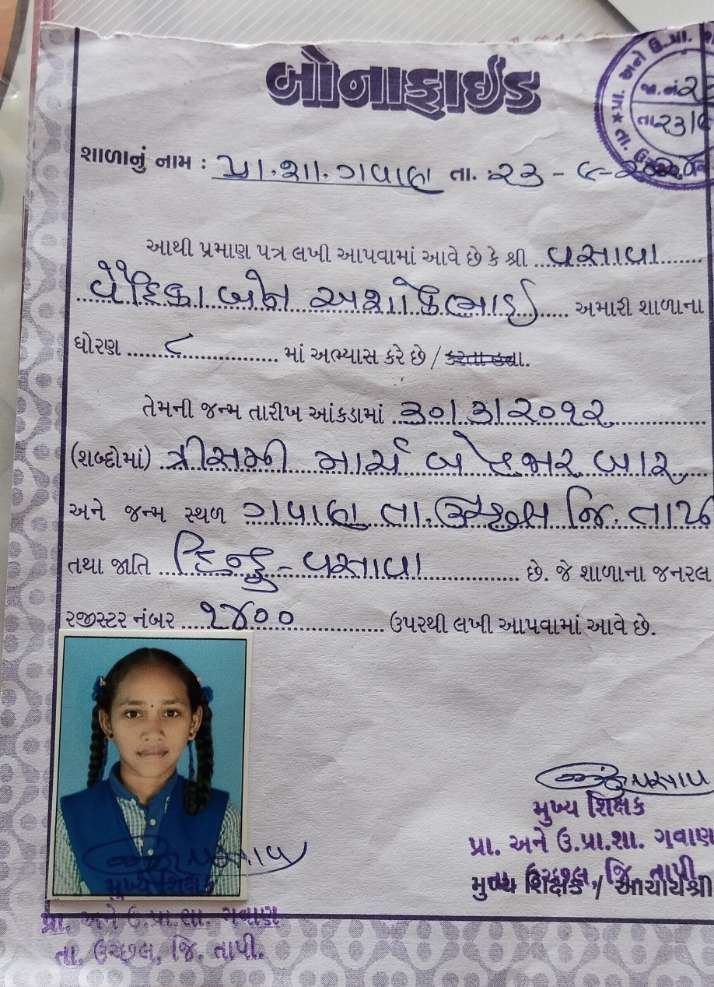 બોનાફાઈડ
શાળાનું નામ : પ્રા.શા. ગવાણ તા. : ૨૩ -
આથી પ્રમાણ પત્ર લખી આપવામાં આવે છે કે શ્રી વસાવા
વેદિકાબેન અશોકભાઈ અમારી શાળાના
ધોરણ ૮ માં અભ્યાસ કરે છે / કરતા હતા.
તેમની જન્મ તારીખ આંકડામાં ૩૦/૩/૨૦૧૨
(શબ્દોમાં) ત્રીસમી માર્ચ બે હજાર બાર
અને જન્મ સ્થળ ગવાણ તા. ઉચ્છલ જિ. તાપી
તથા જાતિ હિન્દુ - વસાવા છે. જે શાળાના જનરલ
રજીસ્ટર નંબર ૧૪૦૦ ઉપરથી લખી આપવામાં આવે છે.
મુખ્ય શિક્ષક
પ્રા. અને ઉ.પ્રા.શા. ગવાણ
તા. ઉચ્છલ, જિ. તાપી
મુખ્ય શિક્ષક / આચાર્યશ્રી
મુખ્ય શિક્ષક
પ્રા. અને ઉ.પ્રા.શા. ગવાણ
તા. ઉચ્છલ, જિ. તાપી.